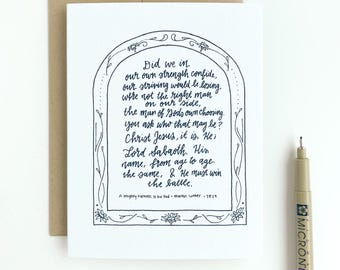 Did we in
our own strength confide,
our striving would be losing,
were not the right man
on our side,
the man of God's own choosing.
you ask who that may be?
Christ Jesus, it is He;
Lord Sabaoth His
name, from age to age
the same, & He must win
the battle.
A Mighty Fortress Is Our God - Martin Luther - 1529
MICRON